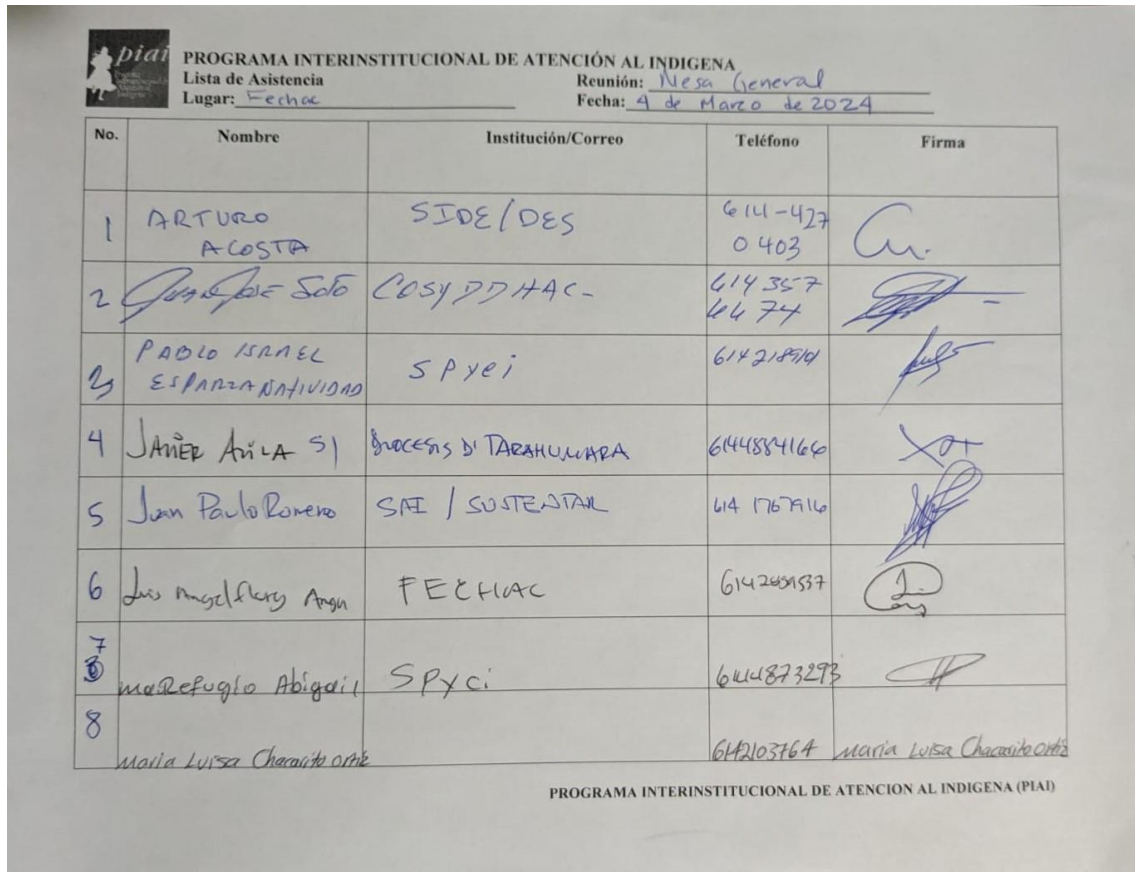 piai
PROGRAMA INTERINSTITUCIONAL DE ATENCIÓN AL INDIGENA
Lista de Asistencia
Reunión: Mesa General
Lugar: Fechac
Fecha: 4 de Marzo de 2024
No. Nombre Institución/Correo Teléfono Firma
1 ARTURO ACOSTA SIDE/DES 614-427 0403
2 JUAN JOSE SOTO COSYDDHAC- 614 357 6674
3 PABLO ISRAEL ESPARZA NATIVIDAD SPyci
4 JAVIER AVILA SJ DIOCESIS D' TARAHUMARA 6144884166
5 Juan Paulo Romero SAI / SUSTENTAR 614 1767916
6 Luis Angel Flores FECHAC
7 Ma Refugio Abigail SPyci 6144873293
8 Maria Luisa Chacarito Ortiz 6142103764 Maria Luisa Chacarito Ortiz
PROGRAMA INTERINSTITUCIONAL DE ATENCION AL INDIGENA (PIAI)